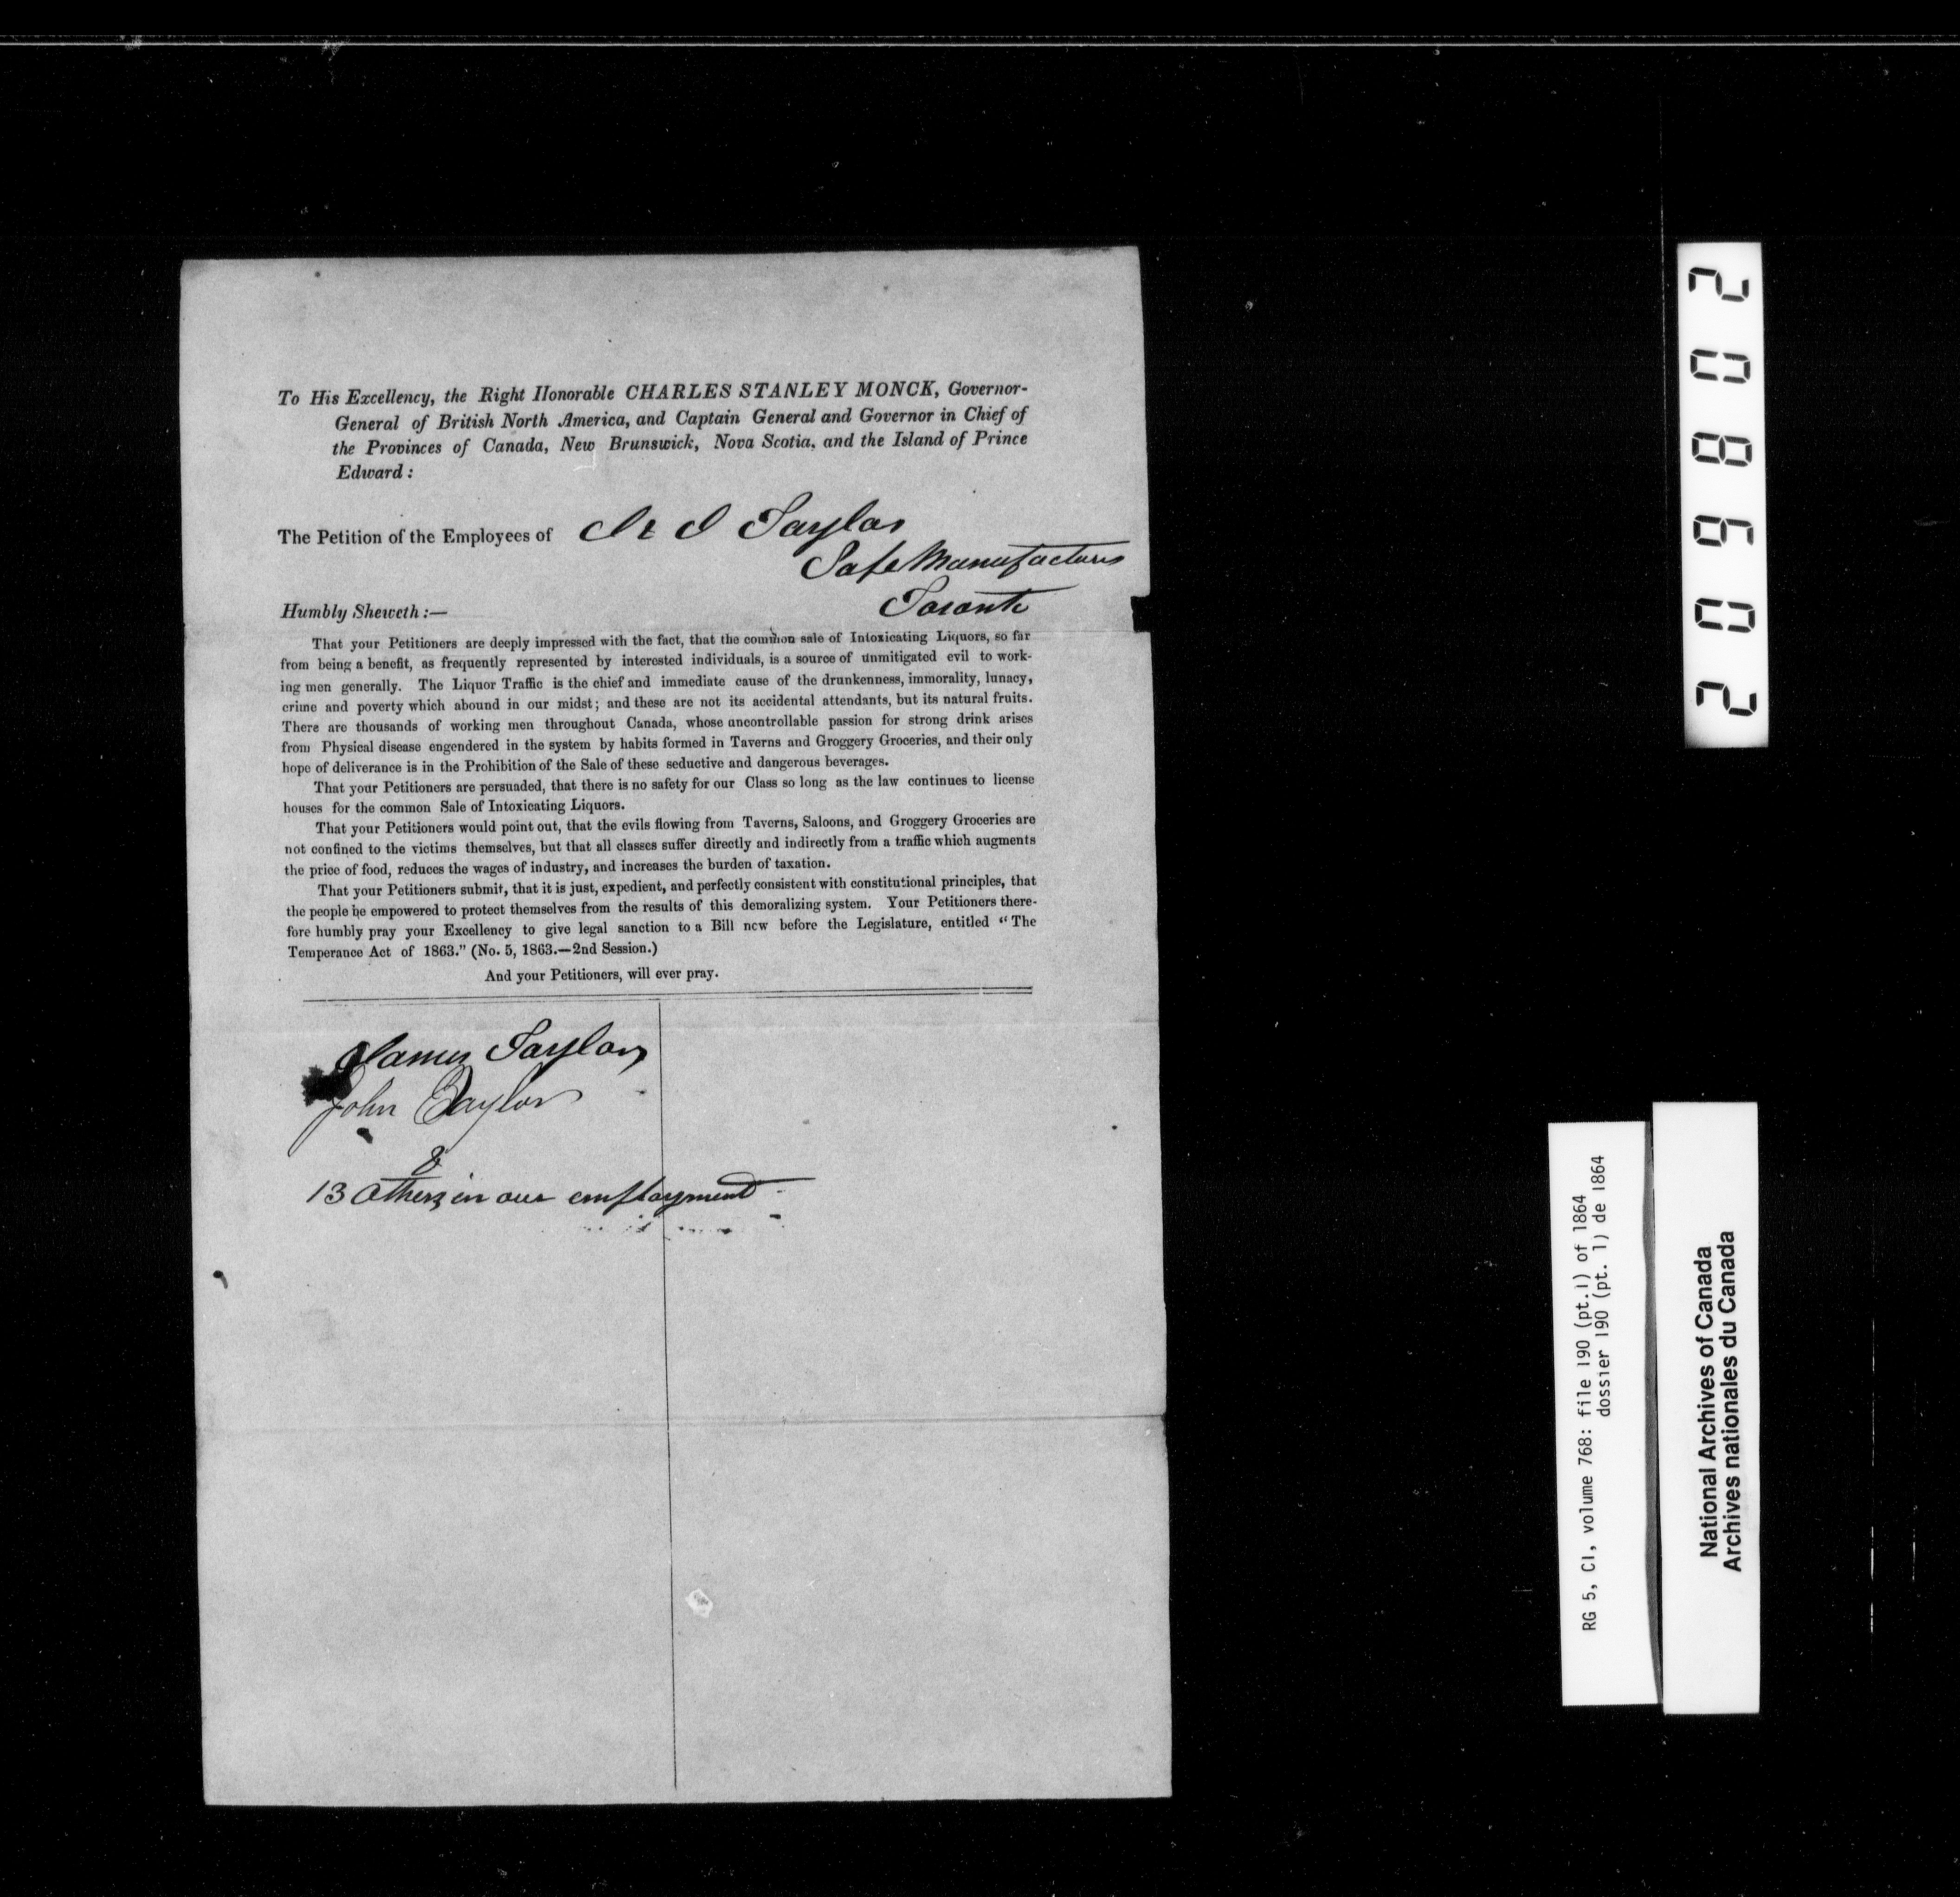 To His Excellency, the Right Honorable CHARLES STANLEY MONCK, Governor-
General of British North America, and Captain General and Governor in Chief of
the Provinces of Canada, New Brunswick, Nova Scotia, and the Island of Prince
Edward:
The Petition of the Employees of J & J Taylor
Safe Manufacturers
Toronto
Humbly Sheweth:—
That your Petitioners are deeply impressed with the fact, that the common sale of Intoxicating Liquors, so far
from being a benefit, as frequently represented by interested individuals, is a source of unmitigated evil to work-
ing men generally. The Liquor Traffic is the chief and immediate cause of the drunkenness, immorality, lunacy,
crime and poverty which abound in our midst; and these are not its accidental attendants, but its natural fruits.
There are thousands of working men throughout Canada, whose uncontrollable passion for strong drink arises
from Physical disease engendered in the system by habits formed in Taverns and Groggery Groceries, and their only
hope of deliverance is in the Prohibition of the Sale of these seductive and dangerous beverages.
That your Petitioners are persuaded, that there is no safety for our Class so long as the law continues to license
houses for the common Sale of Intoxicating Liquors.
That your Petitioners would point out, that the evils flowing from Taverns, Saloons, and Groggery Groceries are
not confined to the victims themselves, but that all classes suffer directly and indirectly from a traffic which augments
the price of food, reduces the wages of industry, and increases the burden of taxation.
That your Petitioners submit, that it is just, expedient, and perfectly consistent with constitutional principles, that
the people be empowered to protect themselves from the results of this demoralizing system. Your Petitioners there-
fore humbly pray your Excellency to give legal sanction to a Bill now before the Legislature, entitled "The
Temperance Act of 1863." (No. 5, 1863.—2nd Session.)
And your Petitioners, will ever pray.
James Taylor
John Taylor
&
13 others in our employment
209802
RG 5, C1, volume 768: file 190 (pt.1) of 1864
dossier 190 (pt. 1) de 1864
National Archives of Canada
Archives nationales du Canada